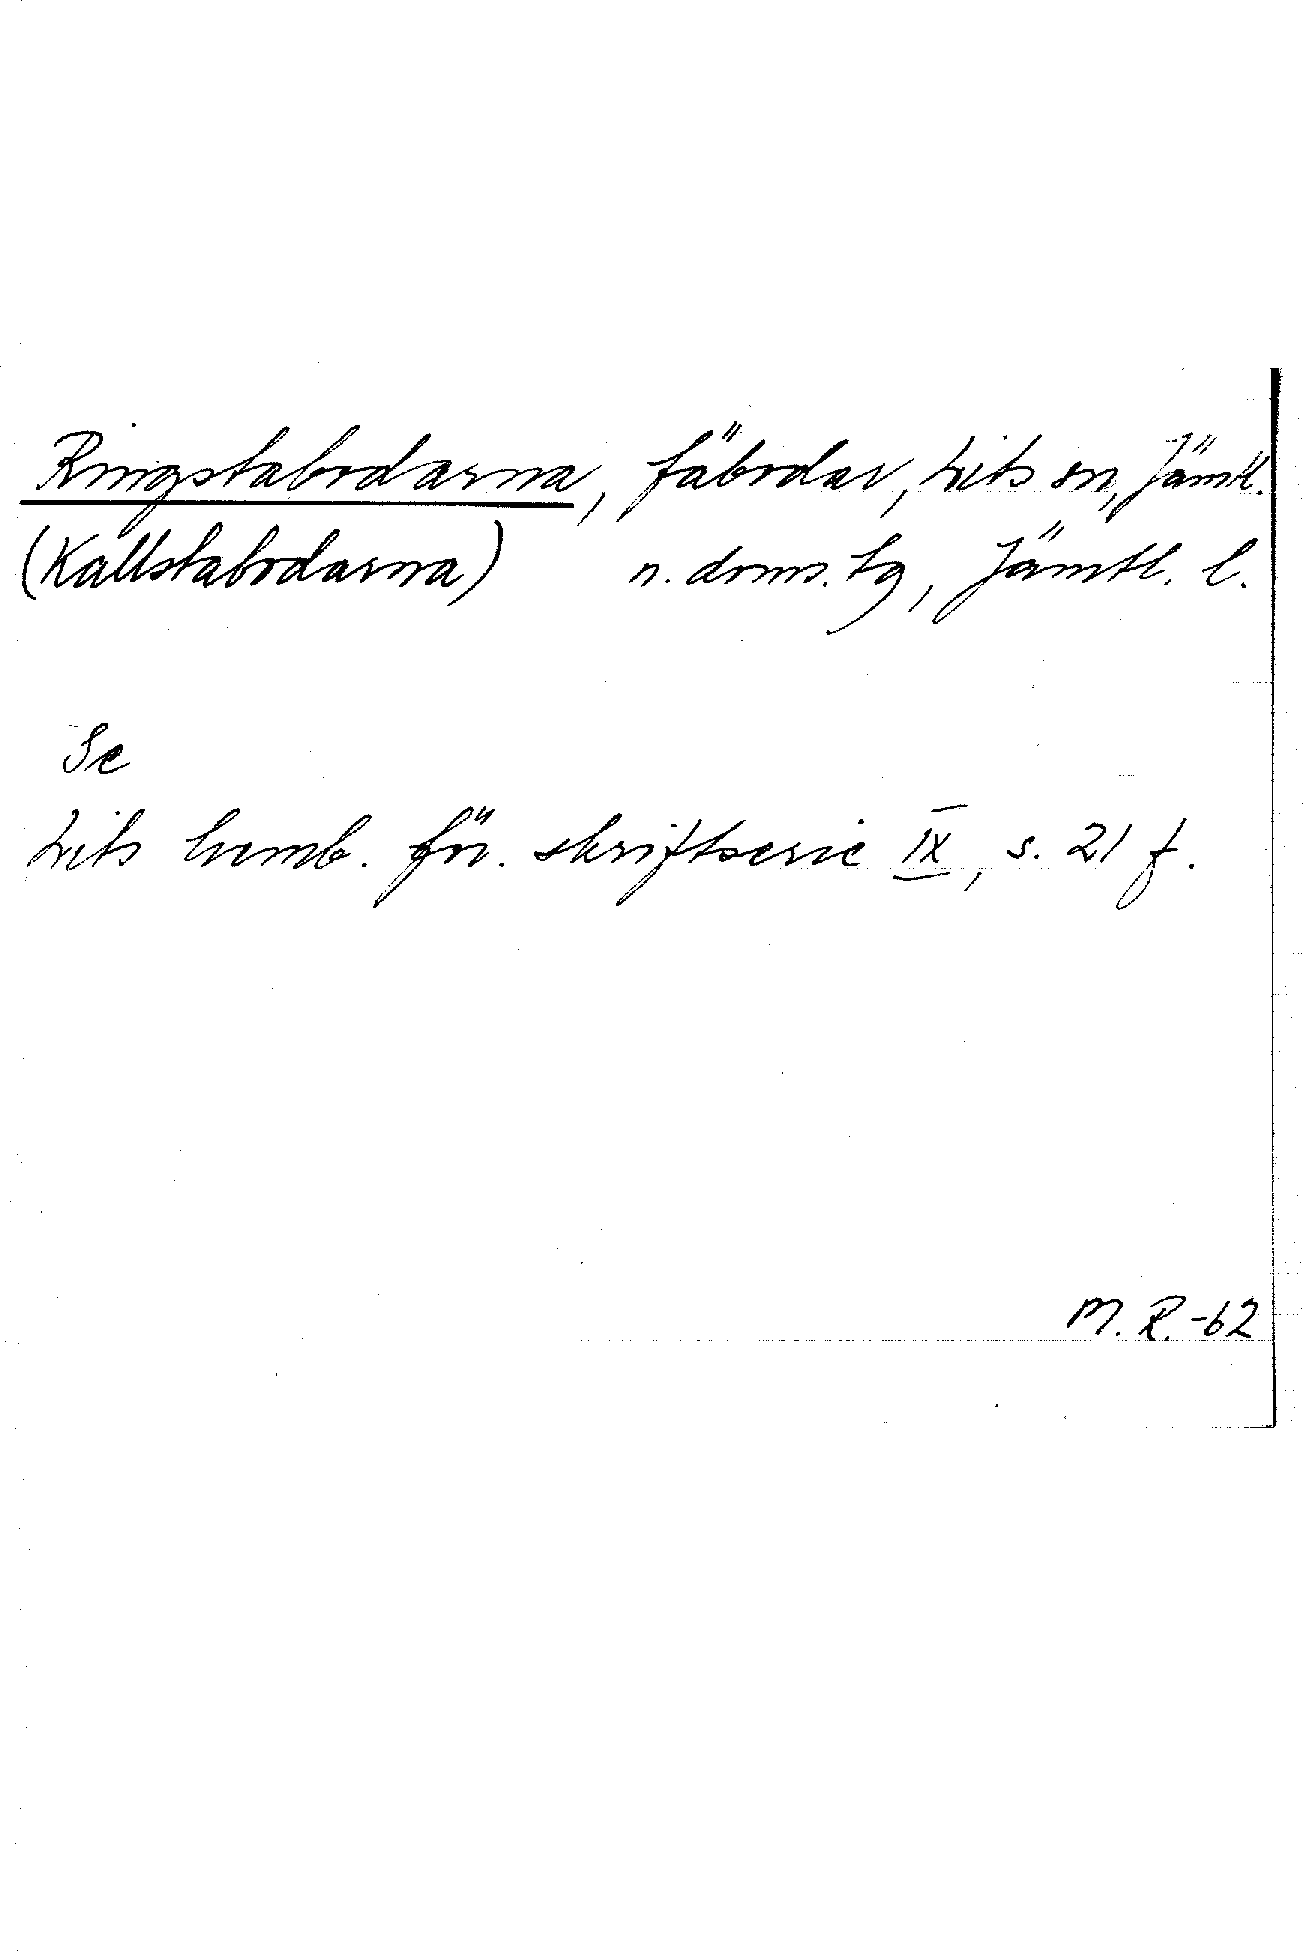 Ringstabodarna, fäbodar, Lits sn, Jämtl.
(Kallstabodarna) n. doms. tg, Jämtl. l.
Se
Lits hemb. för. skriftserie IX, s. 21 f.
M. R. -62